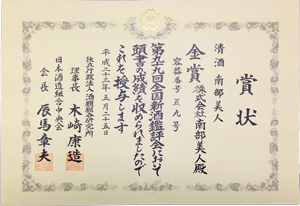 賞状
清酒 南部美人
金賞 株式会社南部美人殿
容器番号 五九号
第九十九回全国新酒鑑評会において
頭書の成績を収められましたので
これを授与します
平成二十三年五月二十五日
独立行政法人酒類総合研究所
理事長 木崎康造
日本酒造組合中央会
会長 辰馬章夫